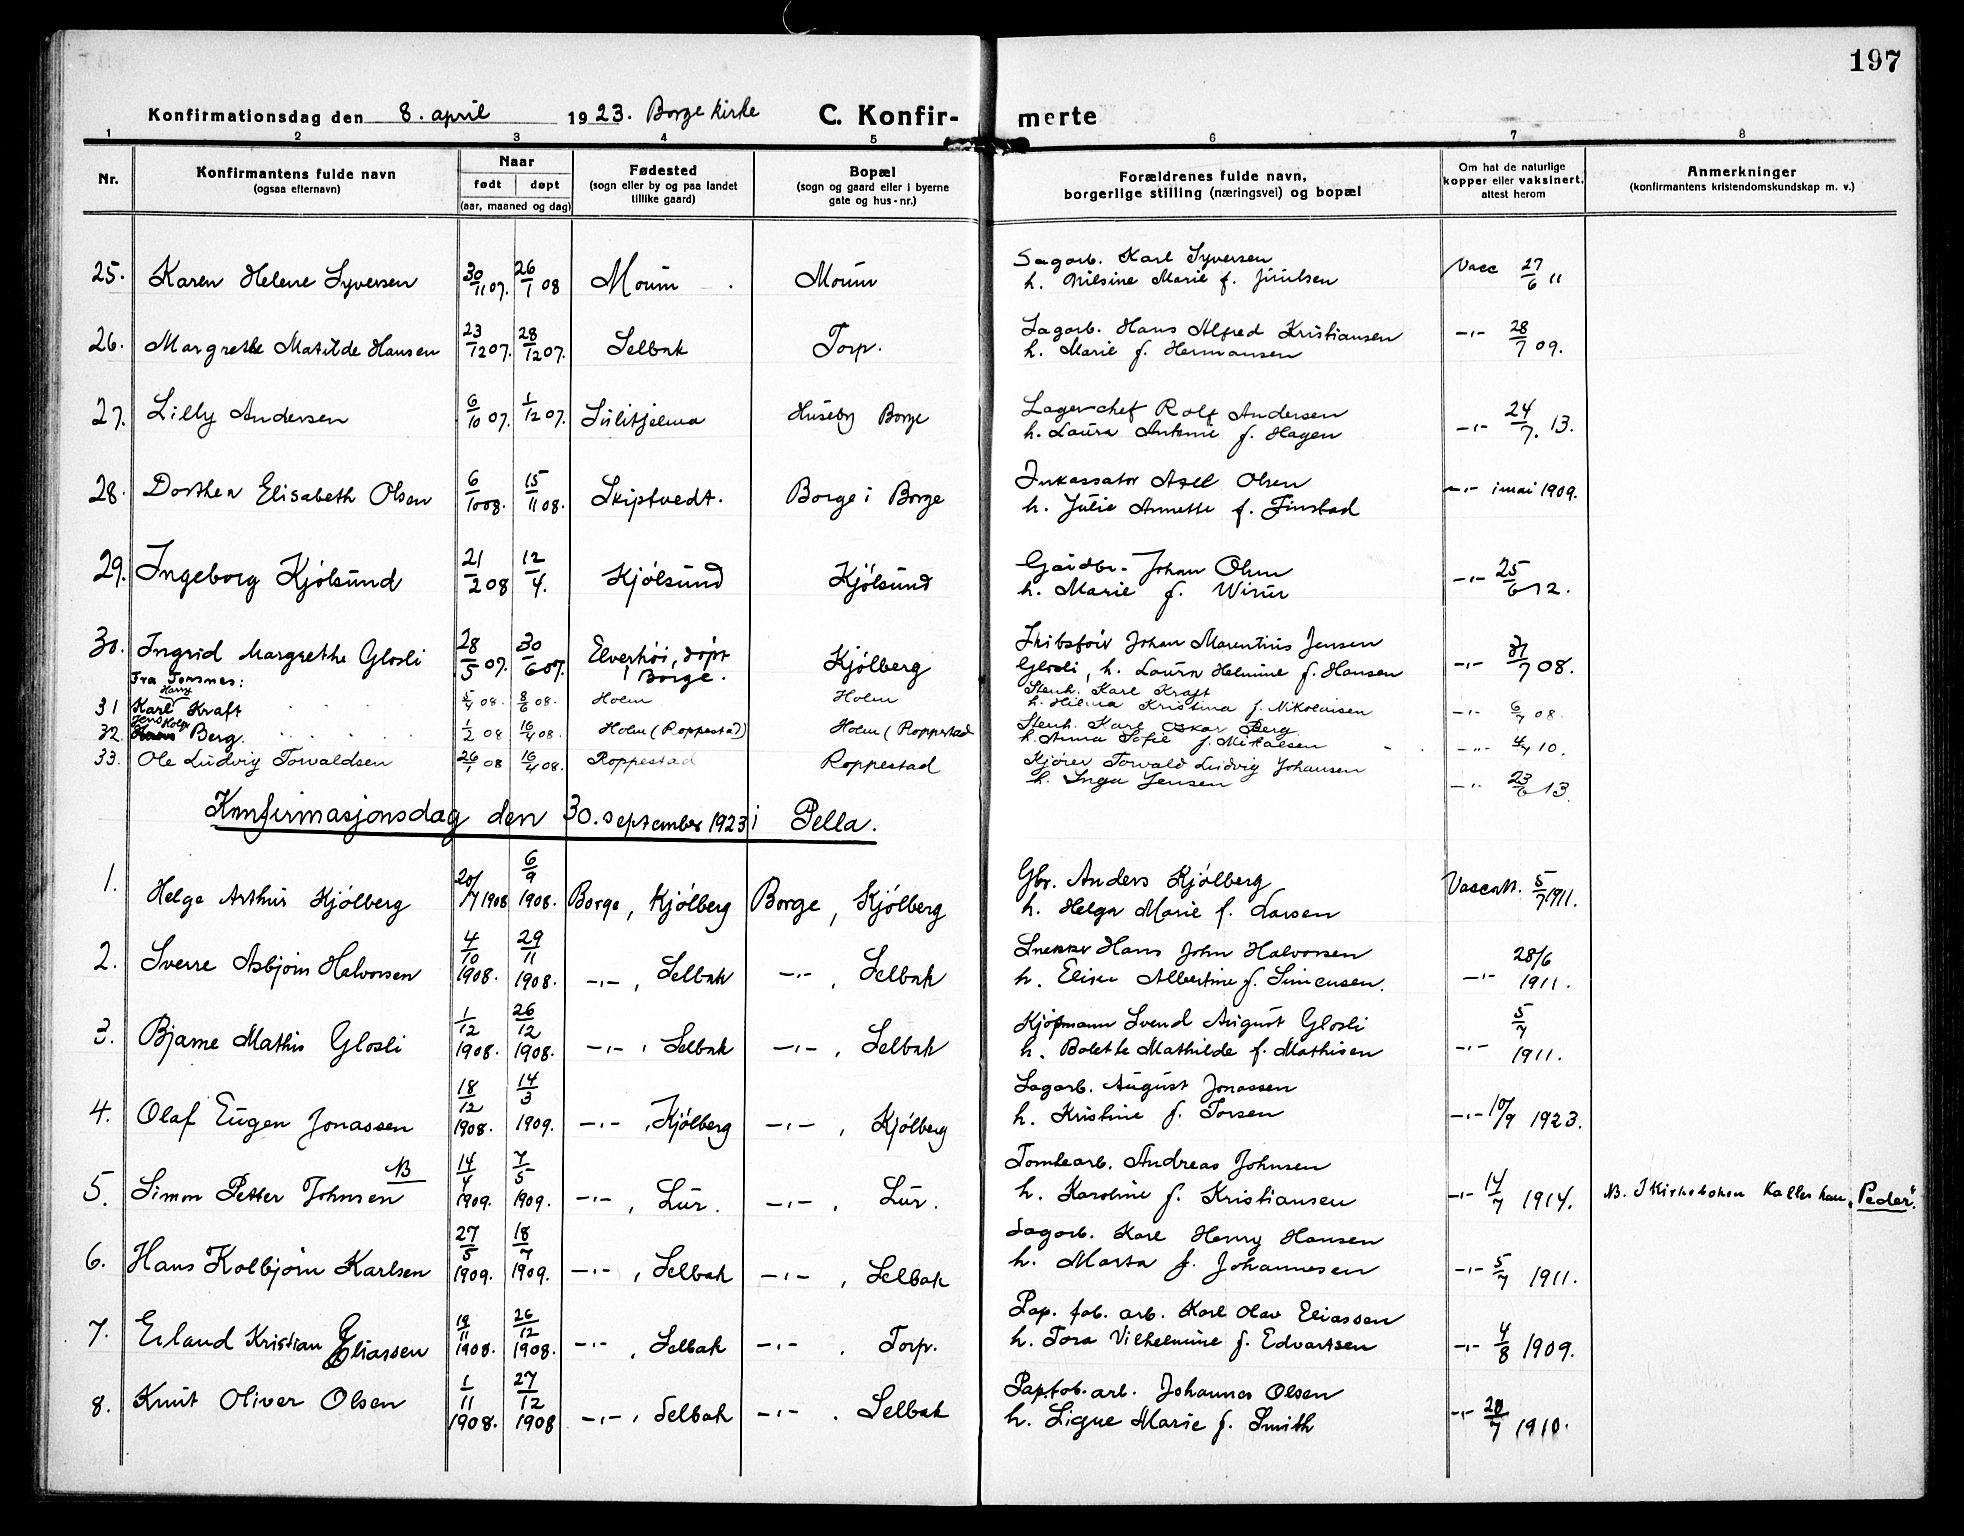 197
Konfirmationsdag den 8. april 1923. Borge kirke C. Konfir-merte
1 2 3 4 5 6 7 8
Nr.
Konfirmantens fulde navn
(ogsaa efternavn)
Naar
født døpt
(aar, maaned og dag)
Fødested
(sogn eller by og paa landet
tillike gaard)
Bopæl
(sogn og gaard eller i byerne
gate og hus-nr.)
Forældrenes fulde navn,
borgerlige stilling (næringsvei) og bopæl
Om hat de naturlige
kopper eller vaksinert,
attest herom
Anmerkninger
(konfirmantens kristendomskundskap m. v.)
25. Karen Helene Syversen 30/11 07. 26/1 08 Moum Moum Sagarb. Karl Syversen Vacc 27/6 11
h. Nilsine Marie f. Juulsen
26. Margrethe Matilde Hansen 23/12 07. 28/12 07. Selbak Torp. Sagarb. Hans Alfred Kristiansen -"- 28/7 09.
h. Marie f. Hermansen
27. Lilly Andersen 6/10 07. 1/12 07. Sulitjelma Huseby Borge Lagerchef Rolf Andersen -"- 24/7. 13.
h. Laura Antonie f. Hagen
28. Dorthea Elisabeth Olsen 6/10 08. 15/11 08. Skiptvedt. Borge i Borge Inkassator Axel Olsen -"- i mai 1909.
h. Julie Annette f. Finstad
29. Ingeborg Kjølsund 21/2 08 12/4. Kjølsund Kjølsund Gaardbr. Johan Olsen -"- 25/6 12.
h. Marie f. Wiur
30. Ingrid Margrethe Glosli 28/5 07. 30/6 07. Elverhøi, døpt i Borge. Kjølberg Skibsfør Johan Marentius Jensen -"- 31/7 08.
Glosli, h. Laura Helmine f. Hansen
Fra Torsnes:
31 Karl Harry Kraft 5/4 08. 8/6 08. Holm Holm Stenh. Karl Kraft -"- 6/7 08.
h. Hilma Kristina f. Nikolaisen
32. Jens Kolbj. Berg. 1/2 08 16/4 08. Holm (Roppestad) Holm (Roppestad Stenh. Karl Oskar Berg. -"- 4/7 10.
h. Anna Sofie f. Mikaelsen
33. Ole Ludvig Torvaldsen 26/1 08 16/4 08. Roppestad Roppestad Kjører Torvald Ludvig Johansen -"- 23/6 13.
h. Inga Jensen
Konfirmasjonsdag den 30. september 1923 i Pella.
1. Helge Arthur Kjølberg 20/7 1908 6/9 1908. Borge, Kjølberg Borge, Kjølberg Gbr. Anders Kjølberg Vaccatt. 5/7 1911.
h. Helga Marie f. Larsen
2. Sverre Asbjørn Halvorsen 4/10 1908. 29/11 1908. -"-, Selbak -"-, Selbak Snekker Hans John Halvorsen -"- 28/6 1911.
h. Elise Albertine f. Simensen.
3. Bjarne Mathis Glosli 1/12 1908. 26/12 1908. -"-, Selbak -"-, Selbak Kjøpmann Svend August Glosli -"- 5/7 1911.
h. Bolette Mathilde f. Mathisen
4. Olaf Eugen Jonassen 18/12 1908. 14/3 1909. -"-, Kjølberg -"-, Kjølberg Sagarb. August Jonassen -"- 10/9 1923.
h. Kristine f. Torsen
5. Simon Petter Johnsen NB 14/4 1909. 7/5 1909. -"-, Lur. -"-, Lur. Tomtearb. Andreas Johnsen -"- 14/7 1914. NB. I Kirkeboken kalles han "Peder".
h. Karoline f. Kristiansen
6. Hans Kolbjørn Karlsen 27/5 1909. 18/7 1909. -"-, Selbak -"-, Selbak Sagarb. Karl Henry Hansen -"- 5/7 1911.
h. Marta f. Johannesen
7. Erland Kristian Eliassen 19/11 1908. 26/12 1908. -"-, Selbak -"-, Torp. Pap. fab. arb. Karl Olav Eliassen -"- 4/8 1909.
h. Tora Vilhelmine f. Edvartsen
8. Knut Oliver Olsen 1/11 1908. 27/12 1908 -"-, Selbak -"-, Selbak Papfab. arb. Johannes Olsen -"- 20/7 1910.
h. Signe Marie f. Smith